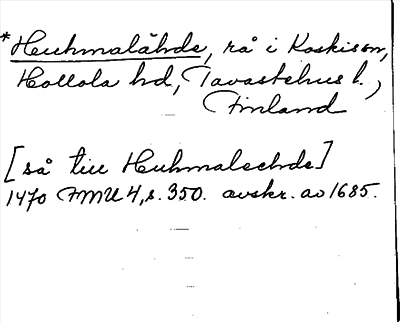 *Huhmalähde, rå i Koskis sn,
Hollola hd, Tavastehus l.,
Finland
[så till Huhmalechde]
1470 FMU 4, s. 350. avskr. av 1685.